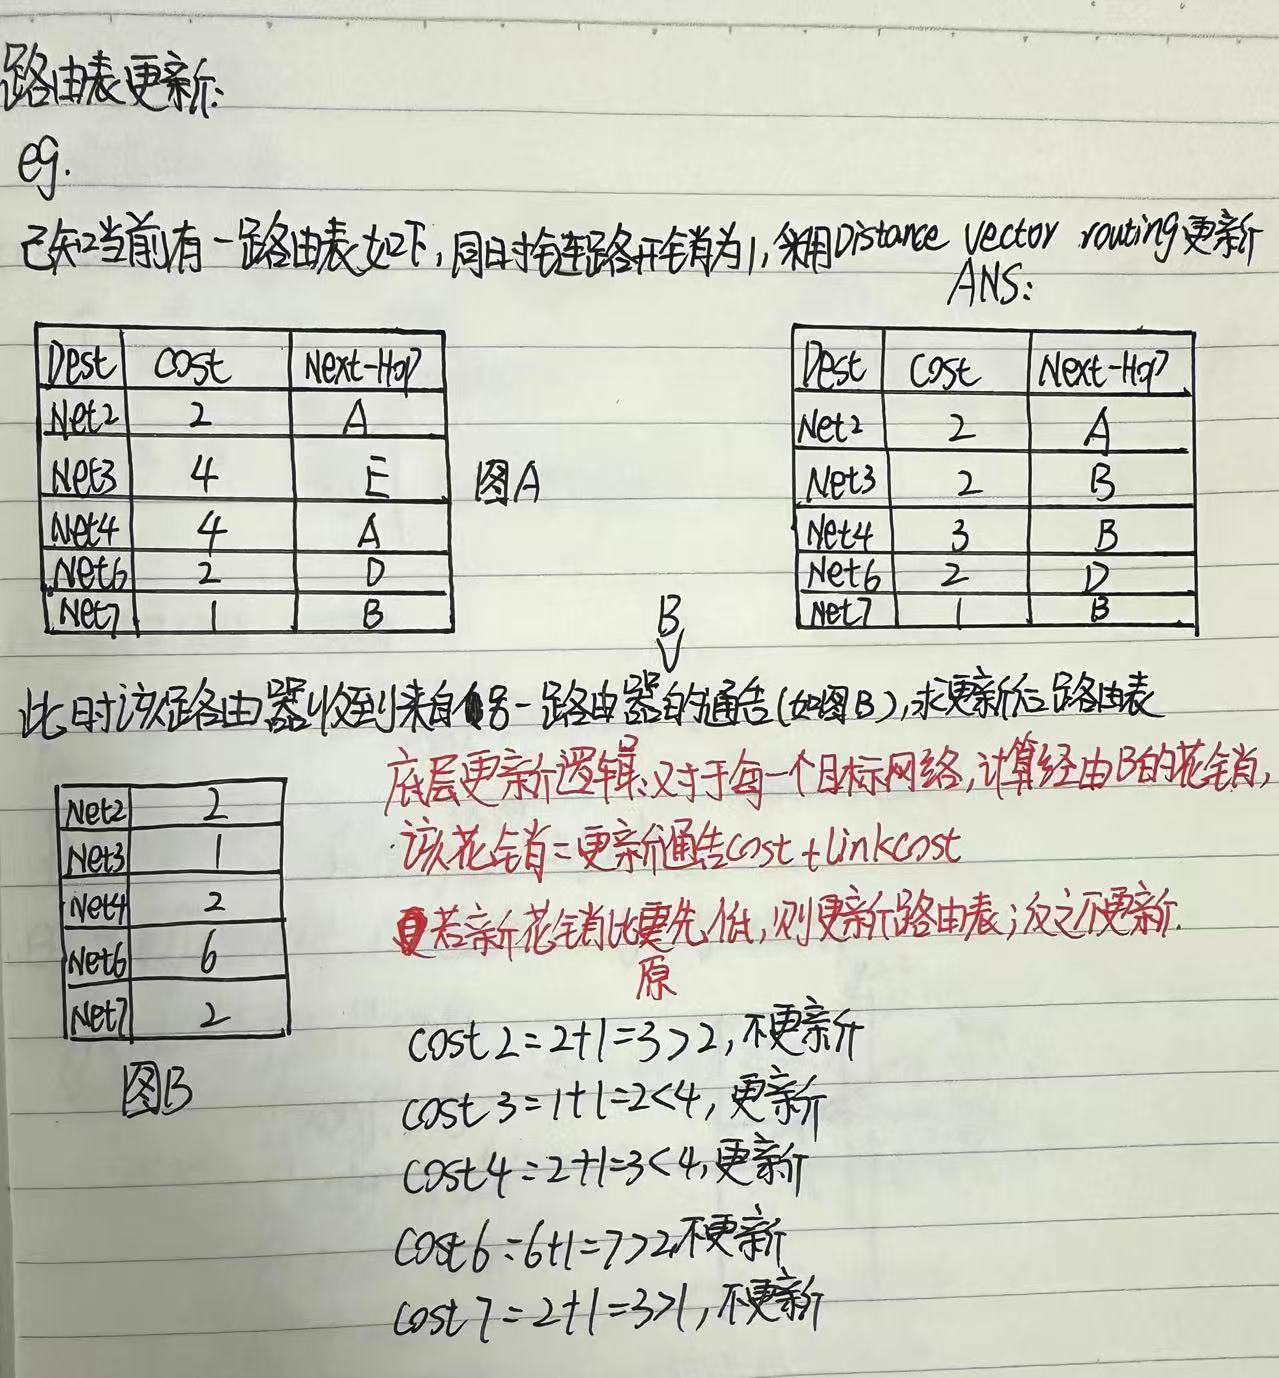 路由表更新:
eg.
已知当前有一路由表如下,同时每连路开销为1,采用Distance vector routing更新
ANS:
Dest Cost Next-Hop
Net2 2 A
Net3 4 E
Net4 4 A
Net6 2 D
Net7 1 B
图A
Dest Cost Next-Hop
Net2 2 A
Net3 2 B
Net4 3 B
Net6 2 D
Net7 1 B
B
此时该路由器收到来自另一路由器的通告(如图B),求更新后路由表
Net2 2
Net3 1
Net4 2
Net6 6
Net7 2
图B
底层更新逻辑:对于每一个目标网络,计算经由B的花销,
该花销=更新通告cost+linkcost
若新花销比更先低,则更新路由表;反之不更新.
原
cost2=2+1=3>2,不更新
cost3=1+1=2<4,更新
cost4=2+1=3<4,更新
cost6=6+1=7>2,不更新
cost7=2+1=3>1,不更新